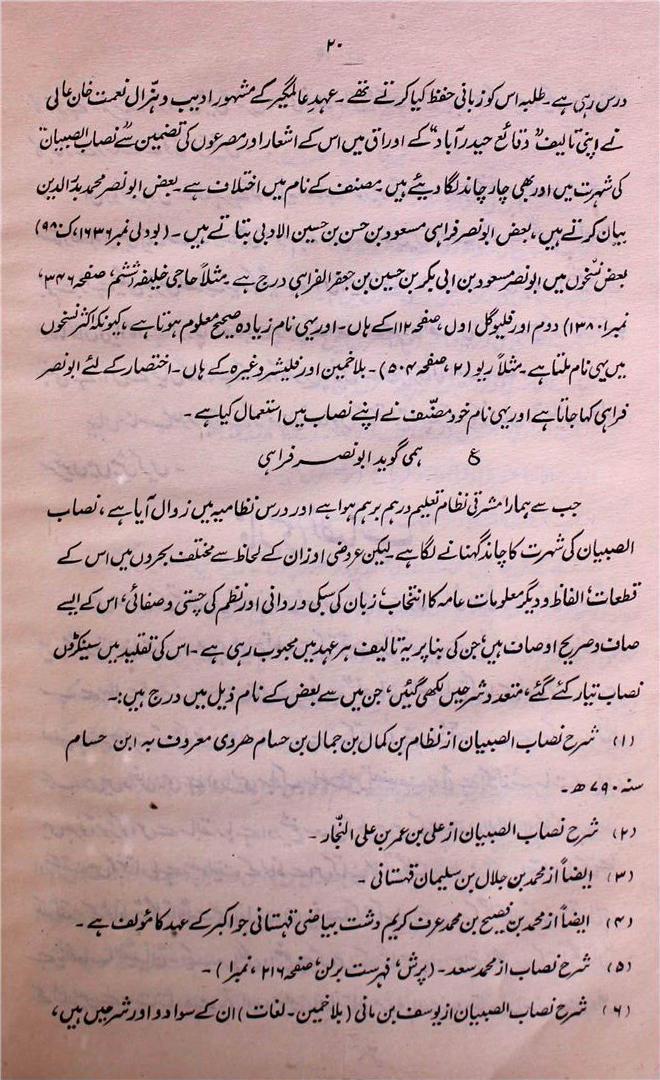 ۲۰
درس رہی ہے۔ طلبہ اس کو زبانی حفظ کیا کرتے تھے۔ عہدِ عالمگیر کے مشہور ادیب و ہزّال نعمت خان عالی
نے اپنی تالیف "وقائع حیدرآباد" کے اوراق میں اس کے اشعار اور مصرعوں کی تضمین سے نصاب الصبیان
کی شہرت میں اور بھی چار چاند لگا دیئے ہیں۔ مصنف کے نام میں اختلاف ہے۔ بعض ابونصر محمد بدرالدین
بیان کرتے ہیں، بعض ابونصر فراہی مسعود بن حسن بن حسین الادبی بتاتے ہیں۔ (بودلی نمبر ۱۶۳۶، ک ۹۸)
بعض نسخوں میں ابونصر مسعود بن ابی بکر بن حسین بن جعفر الفراہی درج ہے۔ مثلاً حاجی خلیفہ ششم، صفحہ ۳۴۶،
نمبر ۱۳۸۰۱) دوم اور فلیوگل اول، صفحہ ۱۱۲ کے ہاں۔ اور یہی نام زیادہ صحیح معلوم ہوتا ہے، کیونکہ اکثر نسخوں
میں یہی نام ملتا ہے۔ مثلاً ریو (۲، صفحہ ۵۰۴)۔ بلاخمین اور فلیشر وغیرہ کے ہاں۔ اختصار کے لئے ابونصر
فراہی کہا جاتا ہے اور یہی نام خود مصنّف نے اپنے نصاب میں استعمال کیا ہے۔
ع ہمی گوید ابونصر فراہی
جب سے ہمارا مشرقی نظام تعلیم درہم برہم ہوا ہے اور درس نظامیہ میں زوال آیا ہے، نصاب
الصبیان کی شہرت کا چاند گہنانے لگا ہے۔ لیکن عروضی اوزان کے لحاظ سے مختلف بحروں میں اس کے
قطعات، الفاظ و دیگر معلومات عامہ کا انتخاب، زبان کی سبکی و روانی اور نظم کی چستی و صفائی، اس کے ایسے
صاف و صریح اوصاف ہیں، جن کی بنا پر یہ تالیف ہر عہد میں محبوب رہی ہے۔ اس کی تقلید میں سینکڑوں
نصاب تیار کئے گئے، متعدد شرحیں لکھی گئیں، جن میں سے بعض کے نام ذیل میں درج ہیں:۔
(۱) شرح نصاب الصبیان از نظام بن کمال بن جمال بن حسام ھردی معروف بہ ابن حسام
سنہ ۷۹۰ھ۔
(۲) شرح نصاب الصبیان از علی بن عمر بن علی النجّار۔
(۳) ایضاً از محمد بن جلال بن سلیمان قہستانی۔
(۴) ایضاً از محمد بن فصیح بن محمد عرف کریم دشت بیاضی قہستانی جو اکبر کے عہد کا مؤلف ہے۔
(۵) شرح نصاب از محمد سعد۔ (پرش، فہرست برلن، صفحہ ۲۱۶، نمبر ۱)۔
(۶) شرح نصاب الصبیان از یوسف بن مانی (بلاخمین۔ لغات) ان کے سوا دو اور شرحیں ہیں،